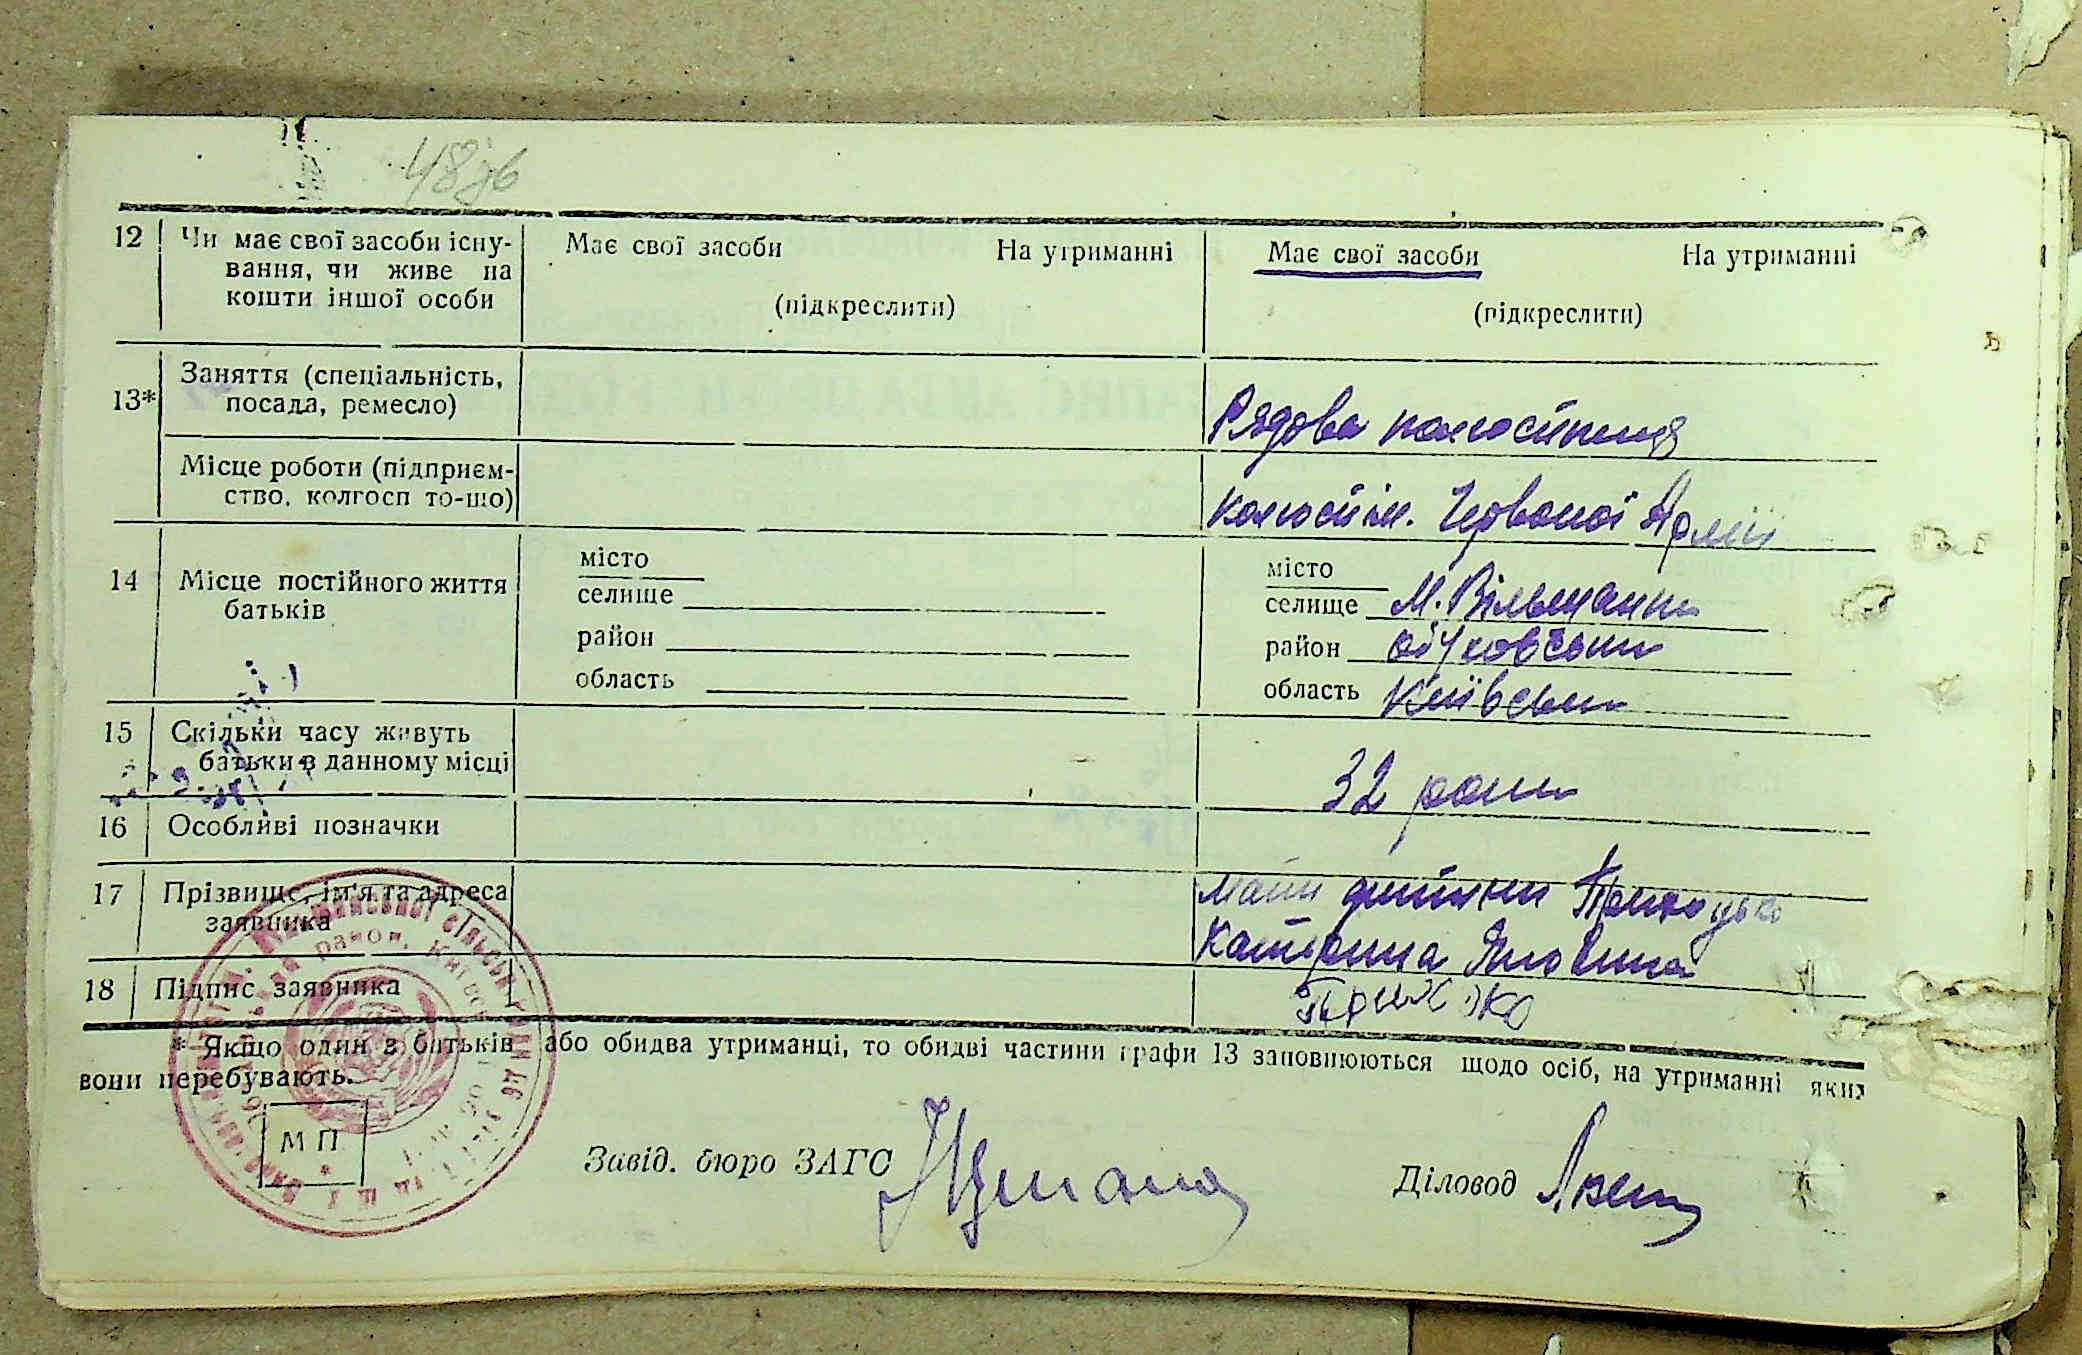 48зв
12 Чи має свої засоби існу- Має свої засоби На утриманні Має свої засоби На утриманні
вання, чи живе на
кошти іншої особи (підкреслити) (підкреслити)
Заняття (спеціальність,
13* посада, ремесло) Рядова колгоспниця
Місце роботи (підприєм-
ство, колгосп то-що) колгосп ім. Червоної Армії
місто місто
14 Місце постійного життя селище селище М. Вільшанка
батьків район район Обуховський
область область Київська
15 Скільки часу живуть
батьки в данному місці 32 роки
16 Особливі позначки
17 Прізвище, ім'я та адреса мати дитини Приходько
заявника Катерина
18 Підпис заявника
* Якщо один з батьків або обидва утриманці, то обидві частини графи 13 заповнюються щодо осіб, на утриманні яких
вони перебувають.
М П
Завід. бюро ЗАГС Діловод